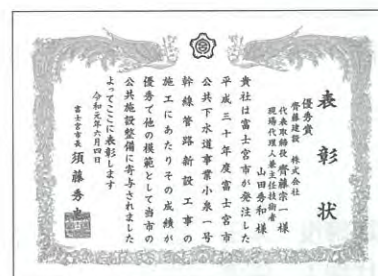 表彰状
優秀賞
齊藤建設 株式会社
代表取締役 齊藤宗一 様
現場代理人兼主任技術者
山田秀和 様
貴社は富士宮市が発注した
平成三十年度富士宮市
公共下水道事業小泉一号
幹線管路新設工事の
施工にあたりその成績が
優秀で他の模範として当市の
公共施設整備に寄与されました
よってここに表彰します
令和元年六月四日
富士宮市長 須藤秀忠